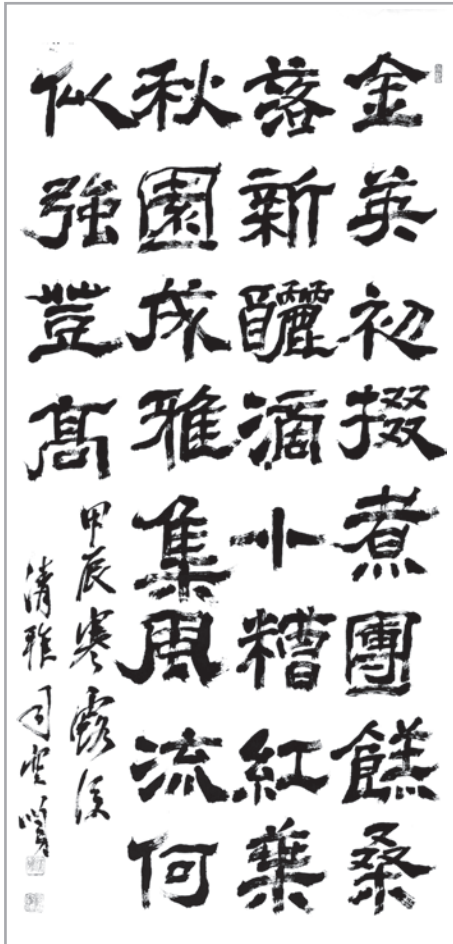 金英初掇煮團餻桑
落新釃滴小糟紅葉
秋園成雅集風流何
似強登髙
甲辰寒露後
清雅司空